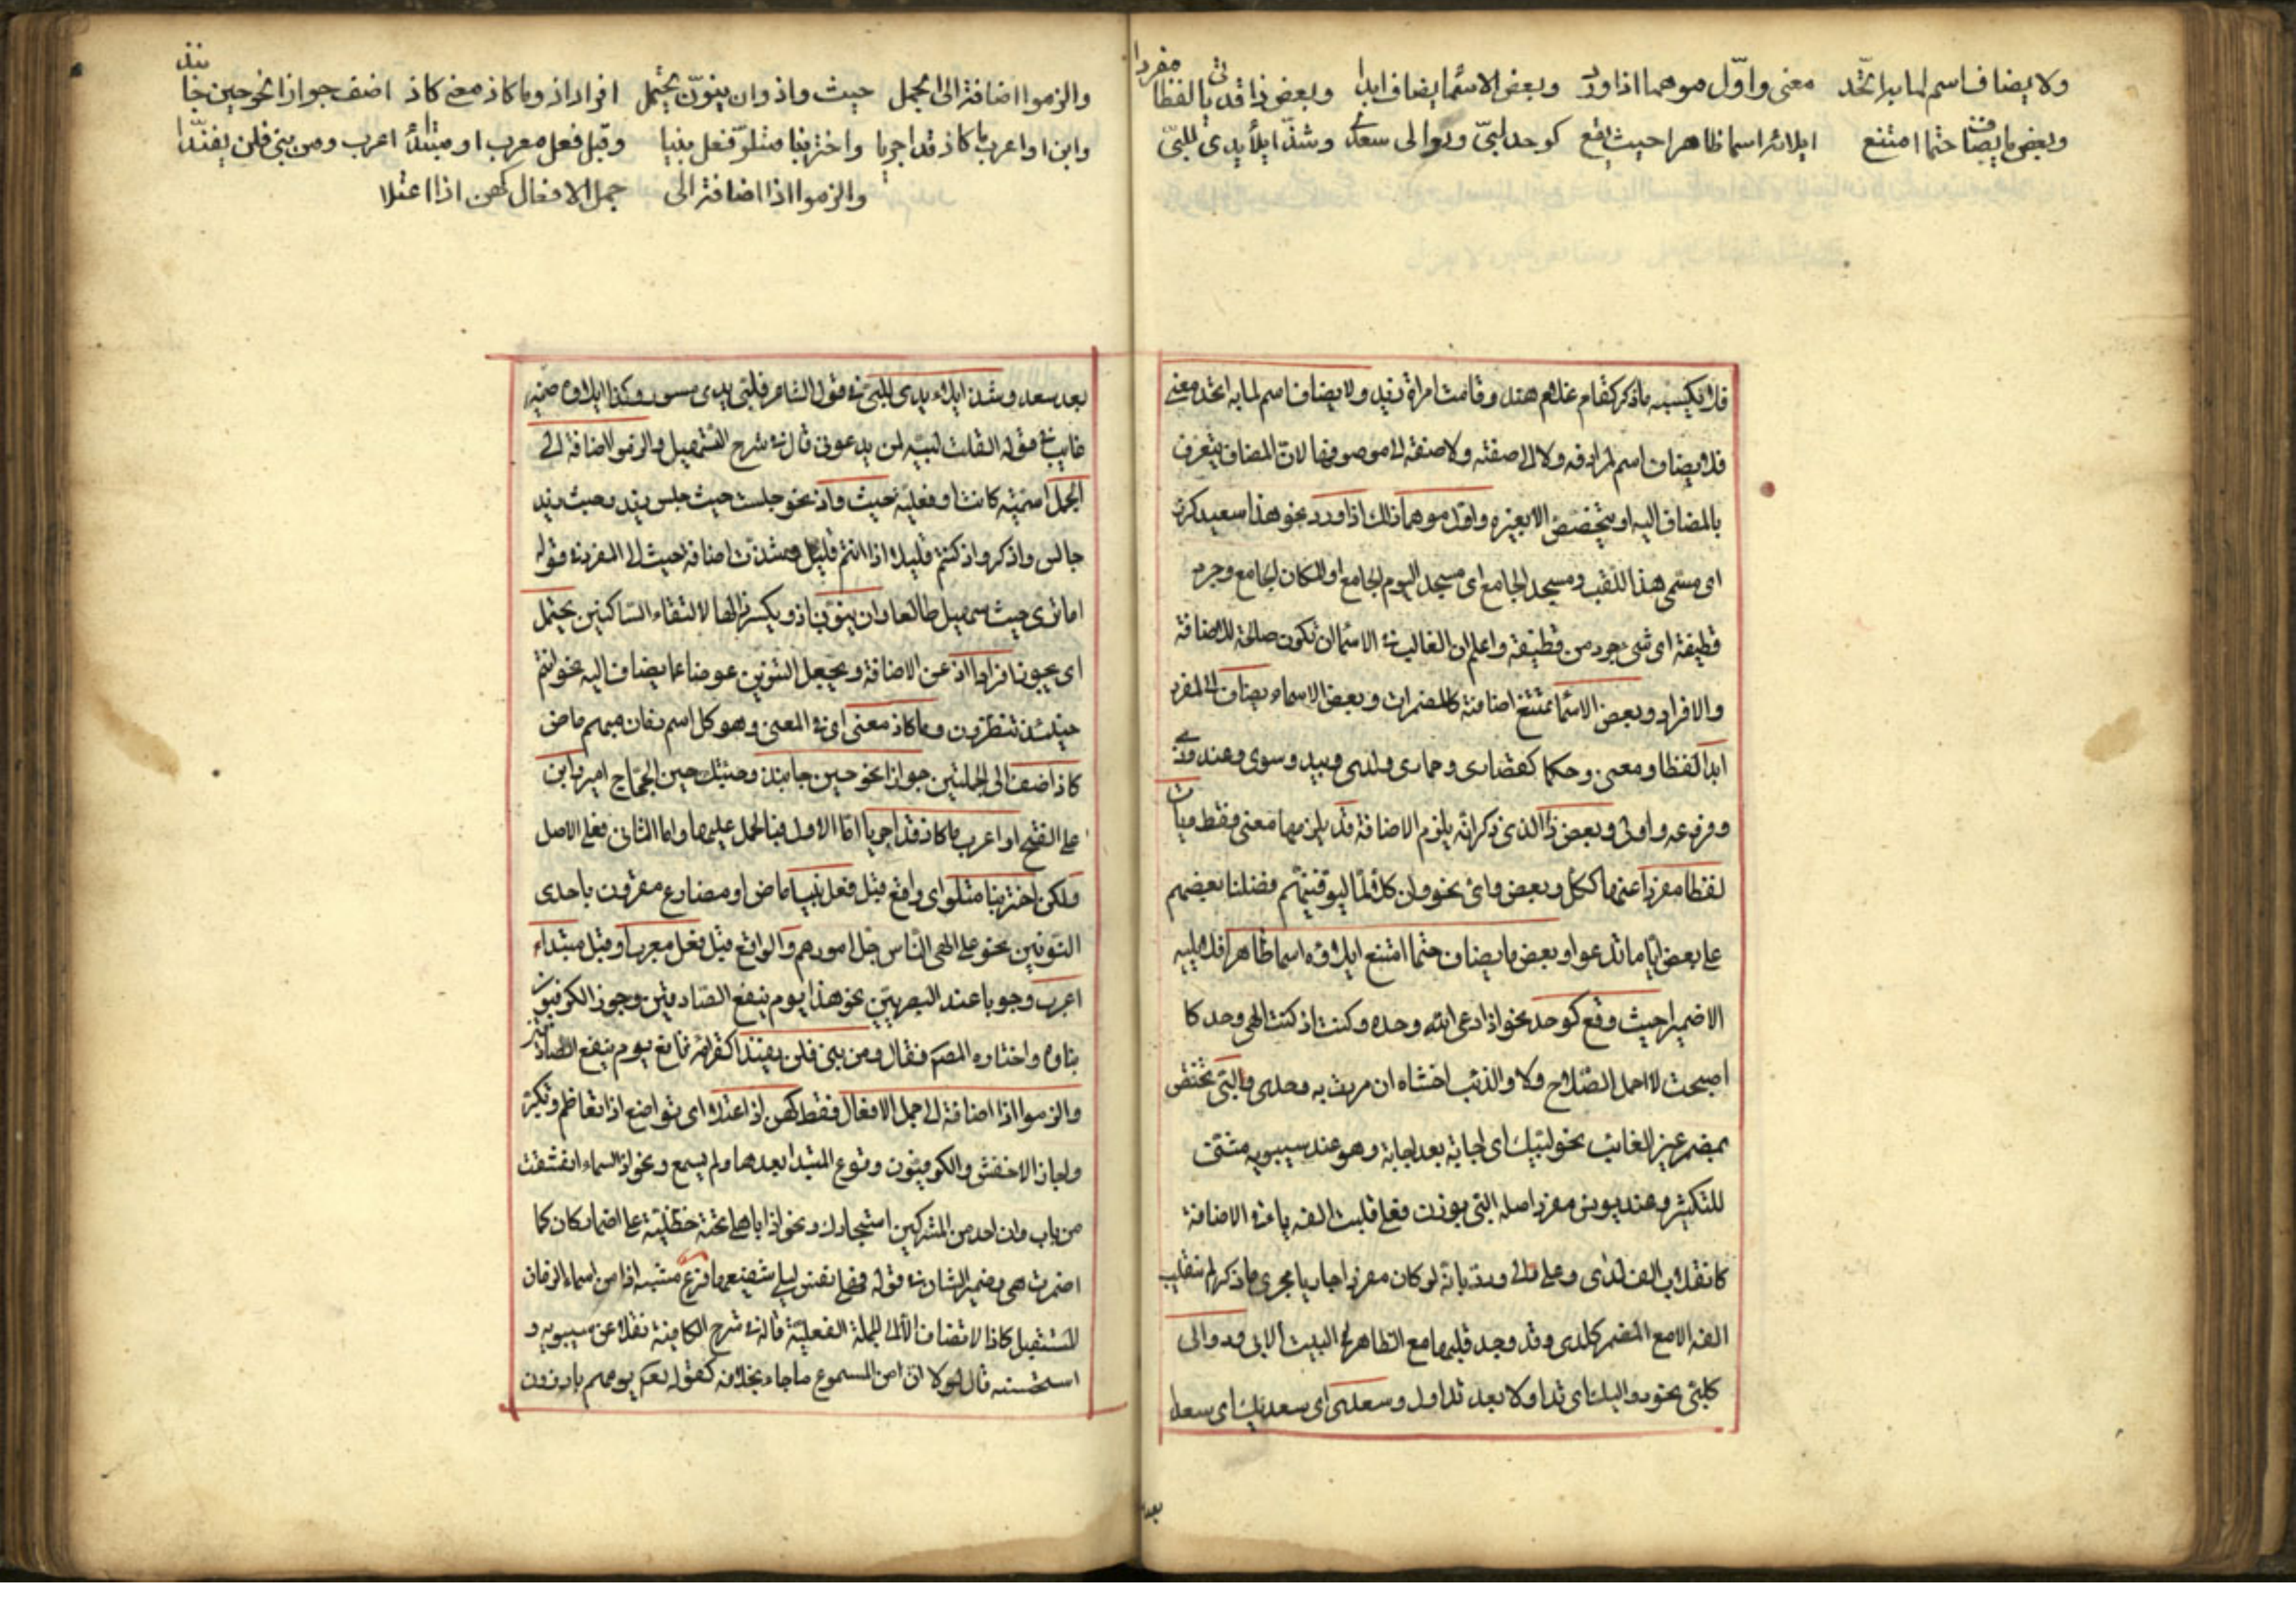 ولا يضاف اسم لما به اتّحد معنى واوّل موهما اذا ورد وبعض الاسما يضاف ابدا وبعض ذا قد يات لفظا مفردا
وبعض ما يضاف حتما امتنع ايلاؤه اسما ظاهرا حيث يقع كوحد لبيّ ودوالى سعدى وشذّ ايلاء يدى للبيّ
فلا يكتسبه ما ذكر كقام غلام هند وقامت امراة زيد ولا يضاف اسم لما به اتحد معنى
فلا يضاف اسم لمرادفه ولا الى صفته ولا صفة الى موصوفها لان المضاف يتعرف
بالمضاف اليه او يتخصص الا بغيره واول موهما ذلك اذا ورد نحو هذا سعيد كرز
اى مسمى هذا اللقب ومسجد الجامع اى مسجد اليوم الجامع او المكان الجامع وجرد
قطيفة اى شى جرد من قطيفة واعلم ان الغالب فى الاسما ان تكون صالحة للاضافة
والافراد وبعض الاسما تمتنع اضافته كالمضمرات وبعض الاسماء يضاف الى المفرد
ابدا لفظا ومعنى وحكما كقصارى وحمادى ولدى وبيد وسوى وعند وذى
وفروعه واولى وبعض ذا الذى ذكر انه يلزم الاضافة قد يلزمها معنى فقط ويات
لفظا مفردا عنها ككل وبعض واى نحو وان كلا لما ليوفينهم فضلنا بعضهم
على بعض ايا ما تدعوا وبعض ما يضاف حتما امتنع ايلاؤه اسما ظاهرا فلا يليه
الا ضمير حيث وقع كوحد نحو اذا دعى الله وحده وكنت اذ كنت الهى وحدكا
اصبحت لا احمل السلاح ولا والذئب اخشاه ان مررت به وحدى ولبى تختص
بمضمر غير الغائب نحو لبيك اى اجابة بعد اجابة وهو عند سيبويه مثنى
للتكثير وعند يونس مفرد اصله لبى بوزن فعلى قلبت الفه ياء فى الاضافة
كانقلاب الف لدى وعلى والى ورد بانه لو كان مفردا جاريا مجرى ما ذكر لم تنقلب
الفه الا مع المضمر كلدى وقد وجد قلبها مع الظاهر فى البيت الاتى ودوالى
كلبى نحو دواليك اى تداولا بعد تداول وسعدى اى سعديك اى سعدا
بعد
والزموا اضافة الى الجمل حيث واذ وان ينوّن يحتمل افراد اذ وما كاذ معنى كاذ اضف جوازا نحو حين جا نبذ
وابن او اعرب ما كاذ قد اجريا واختر بنا متلوّ فعل بنيا وقبل فعل معرب او مبتدأ اعرب ومن بنى فلن يفنّدا
والزموا اذا اضافة الى جمل الافعال كهن اذا اعتلا
بعد سعد وشذ ايلاء يدى للبى فى قول الشاعر فلبى يدى مسور وكذا ايلاؤه ضمير
غايب فى قوله لقلت لبيه لمن يدعونى قال فى شرح التسهيل والزموا اضافة الى
الجمل اسمية كانت او فعلية حيث واذ نحو جلست حيث جلس زيد وحيث زيد
جالس واذكروا اذ كنتم قليلا اذ انتم قليل وشذت اضافة حيث الى المفرد فى قوله
اما ترى حيث سهيل طالعا وان ينون اذ ويكسر ذالها لالتقاء الساكنين يحتمل
اى يجوز افراد اذ عن الاضافة ويجعل التنوين عوضا عما يضاف اليه نحو وانتم
حينئذ تنظرون وما كاذ معنى اى فى المعنى وهو كل اسم زمان مبهم ماض
كاذ اضف الى الجملتين جوازا نحو حين جا نبذ وجئتك حين الحجاج امير وابن
على الفتح او اعرب ما كاذ قد اجريا اما الاول فبالحمل عليها واما الثانى فعلى الاصل
ولكن اختر بنا متلو اى واقع قبل فعل بنيا ماض او مضارع مقرون باحدى
النونين نحو على حين الهى الناس جل امورهم والواقع قبل فعل معرب او قبل مبتداء
اعرب وجوبا عند البصريين نحو هذا يوم ينفع الصادقين وجوز الكوفيون
بناؤه واختاره المصـ فقال ومن بنى فلن يفندا كقراة نافع يوم ينفع الصادقين
والزموا اذا اضافة الى جمل الافعال فقط كهن اذا اعتلا اى تواضع اذا تعاظم وتكبر
واجاز الاخفش والكوفيون وقوع المبتدا بعدها ولم يسمع ونحو اذا السماء انشقت
من باب وان احد من المشركين استجارك ونحو اذا باهلى تحته حنظلية على اضمار كان كما
اضمرت هى وضمير الشان فى قوله فهلا نفس ليلى شفيعها فرع مشبه اذا من اسماء الزمان
المستقبل كاذا لا تضاف الا الى الجملة الفعلية قاله فى شرح الكافية نقلا عن سيبويه و
استحسنه قال لولا ان من المسموع ما جاء بخلافه كقوله تعـ يوم هم بارزون